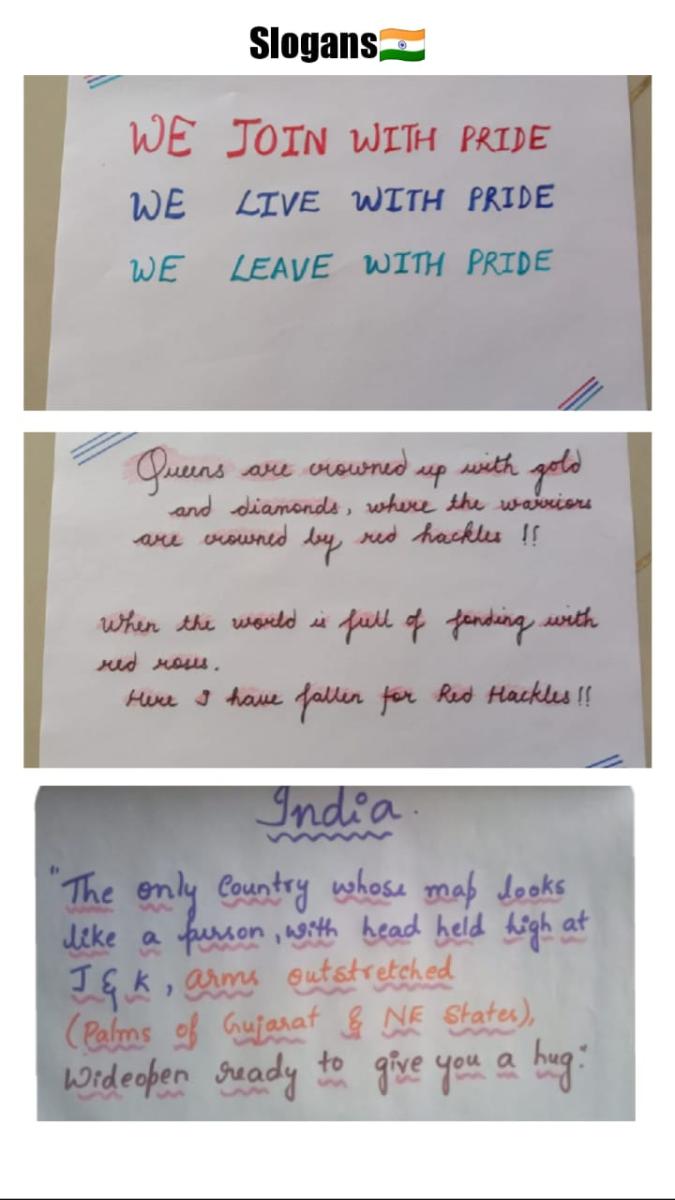 Slogans🇮🇳
WE JOIN WITH PRIDE
WE LIVE WITH PRIDE
WE LEAVE WITH PRIDE
Queens are crowned up with gold
and diamonds, where the warriors
are crowned by red hackles !!
When the world is full of fonding with
red roses.
Here I have fallen for Red Hackles!!
India.
"The only Country whose map looks
like a person, with head held high at
J & K, arms outstretched
(Palms of Gujarat & NE States),
Wideopen ready to give you a hug."